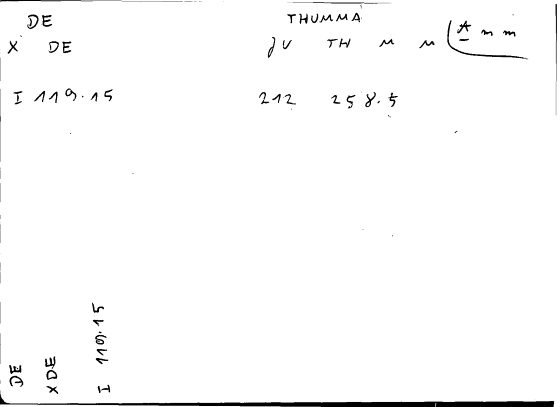 DE THUMMA
X DE JU TH M M A m m
I 119.15 212 258.5
DE
X DE
I 119.15